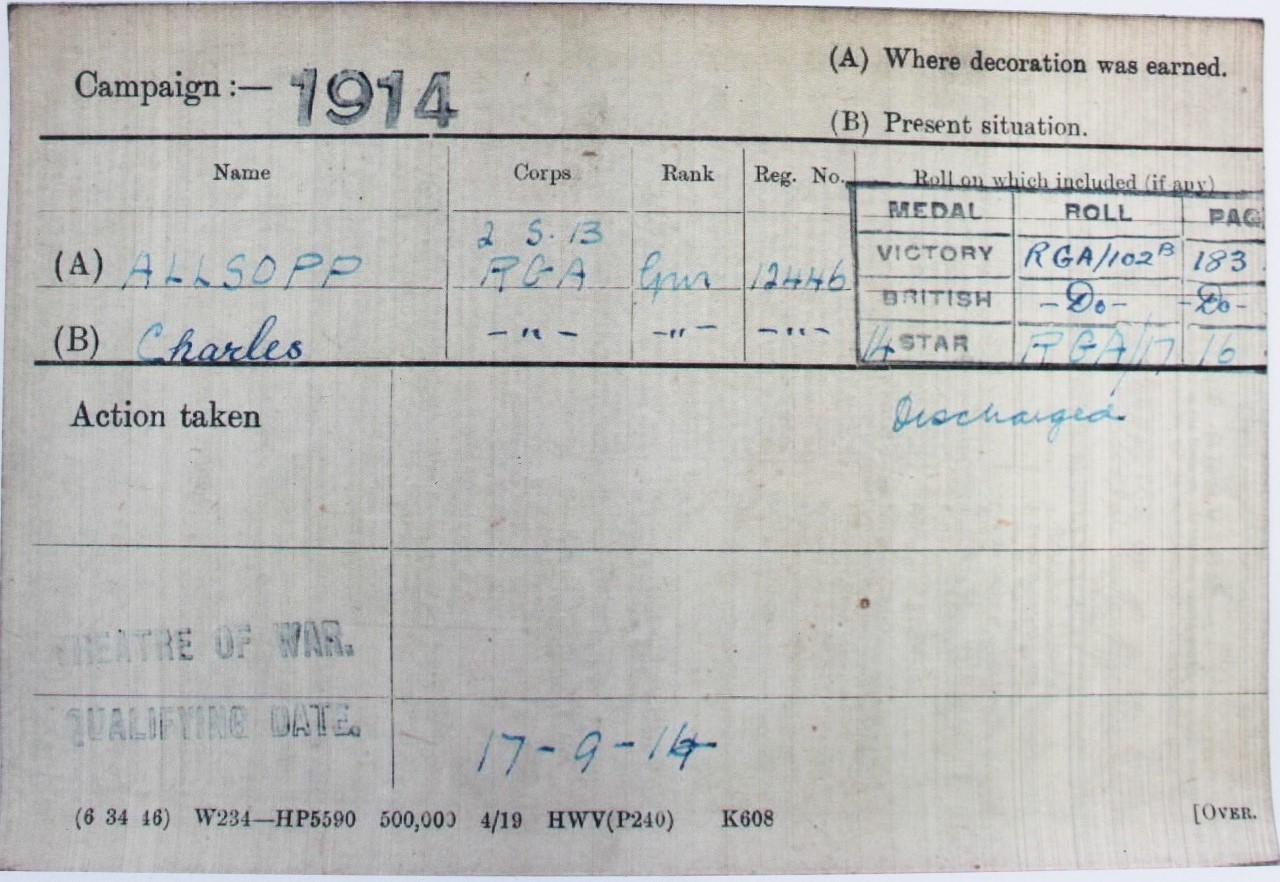 Campaign :— 1914
(A) Where decoration was earned.
(B) Present situation.
Name Corps Rank Reg. No. Roll on which included (if any)
MEDAL ROLL PAG
2 S. 13
(A) ALLSOPP RGA Gnr 12446 VICTORY RGA/102B 183
BRITISH -Do- -Do-
(B) Charles -"- -"- -"- 14 STAR RGA/17 16
Action taken Discharged
THEATRE OF WAR.
QUALIFYING DATE. 17-9-14
(6 34 46) W234—HP5590 500,000 4/19 HWV(P240) K608 [OVER.